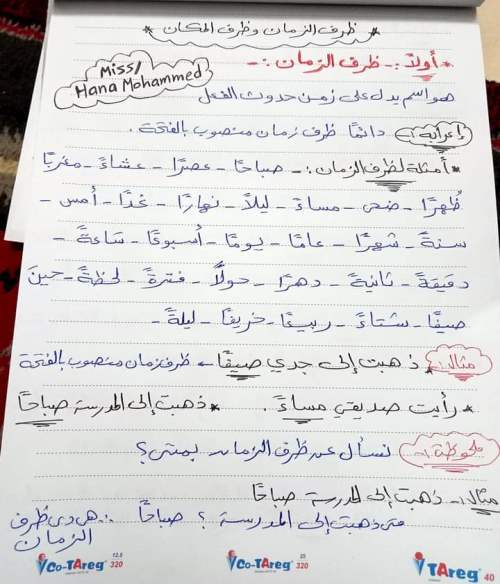 * ظرف الزمان وظرف المكان *
* أولاً :- ظرف الزمان :-
Miss/
Hana Mohammed
هو اسم يدل على زمن حدوث الفعل
إعرابه :- دائمًا ظرف زمان منصوب بالفتحة .
* أمثلة لظرف الزمان :- صباحًا - عصرًا - عشاءً - مغربًا
ظهرًا - ضحى - مساءً - ليلاً - نهارًا - غدًا - أمس -
سنةً - شهرًا - عامًا - يومًا - أسبوعًا - ساعةً -
دقيقةً - ثانيةً - دهرًا - حولاً - فترةً - لحظةً - حينَ
صيفًا - شتاءً - ربيعًا - خريفًا - ليلةً -
مثال :- * ذهبت إلى جدي صيفًا ← ظرف زمان منصوب بالفتحة
* رأيت صديقي مساءً . * ذهبت إلى المدرسة صباحًا
ملحوظة :- نسأل عن ظرف الزمان بمتى ؟
مثال :- ذهبت إلى المدرسة صباحًا
متى ذهبت إلى المدرسة ؟ صباحًا ∴ هي دي ظرف
الزمان
Co-TAreg 12.5 320
Co-TAreg 25 320
TAreg 40